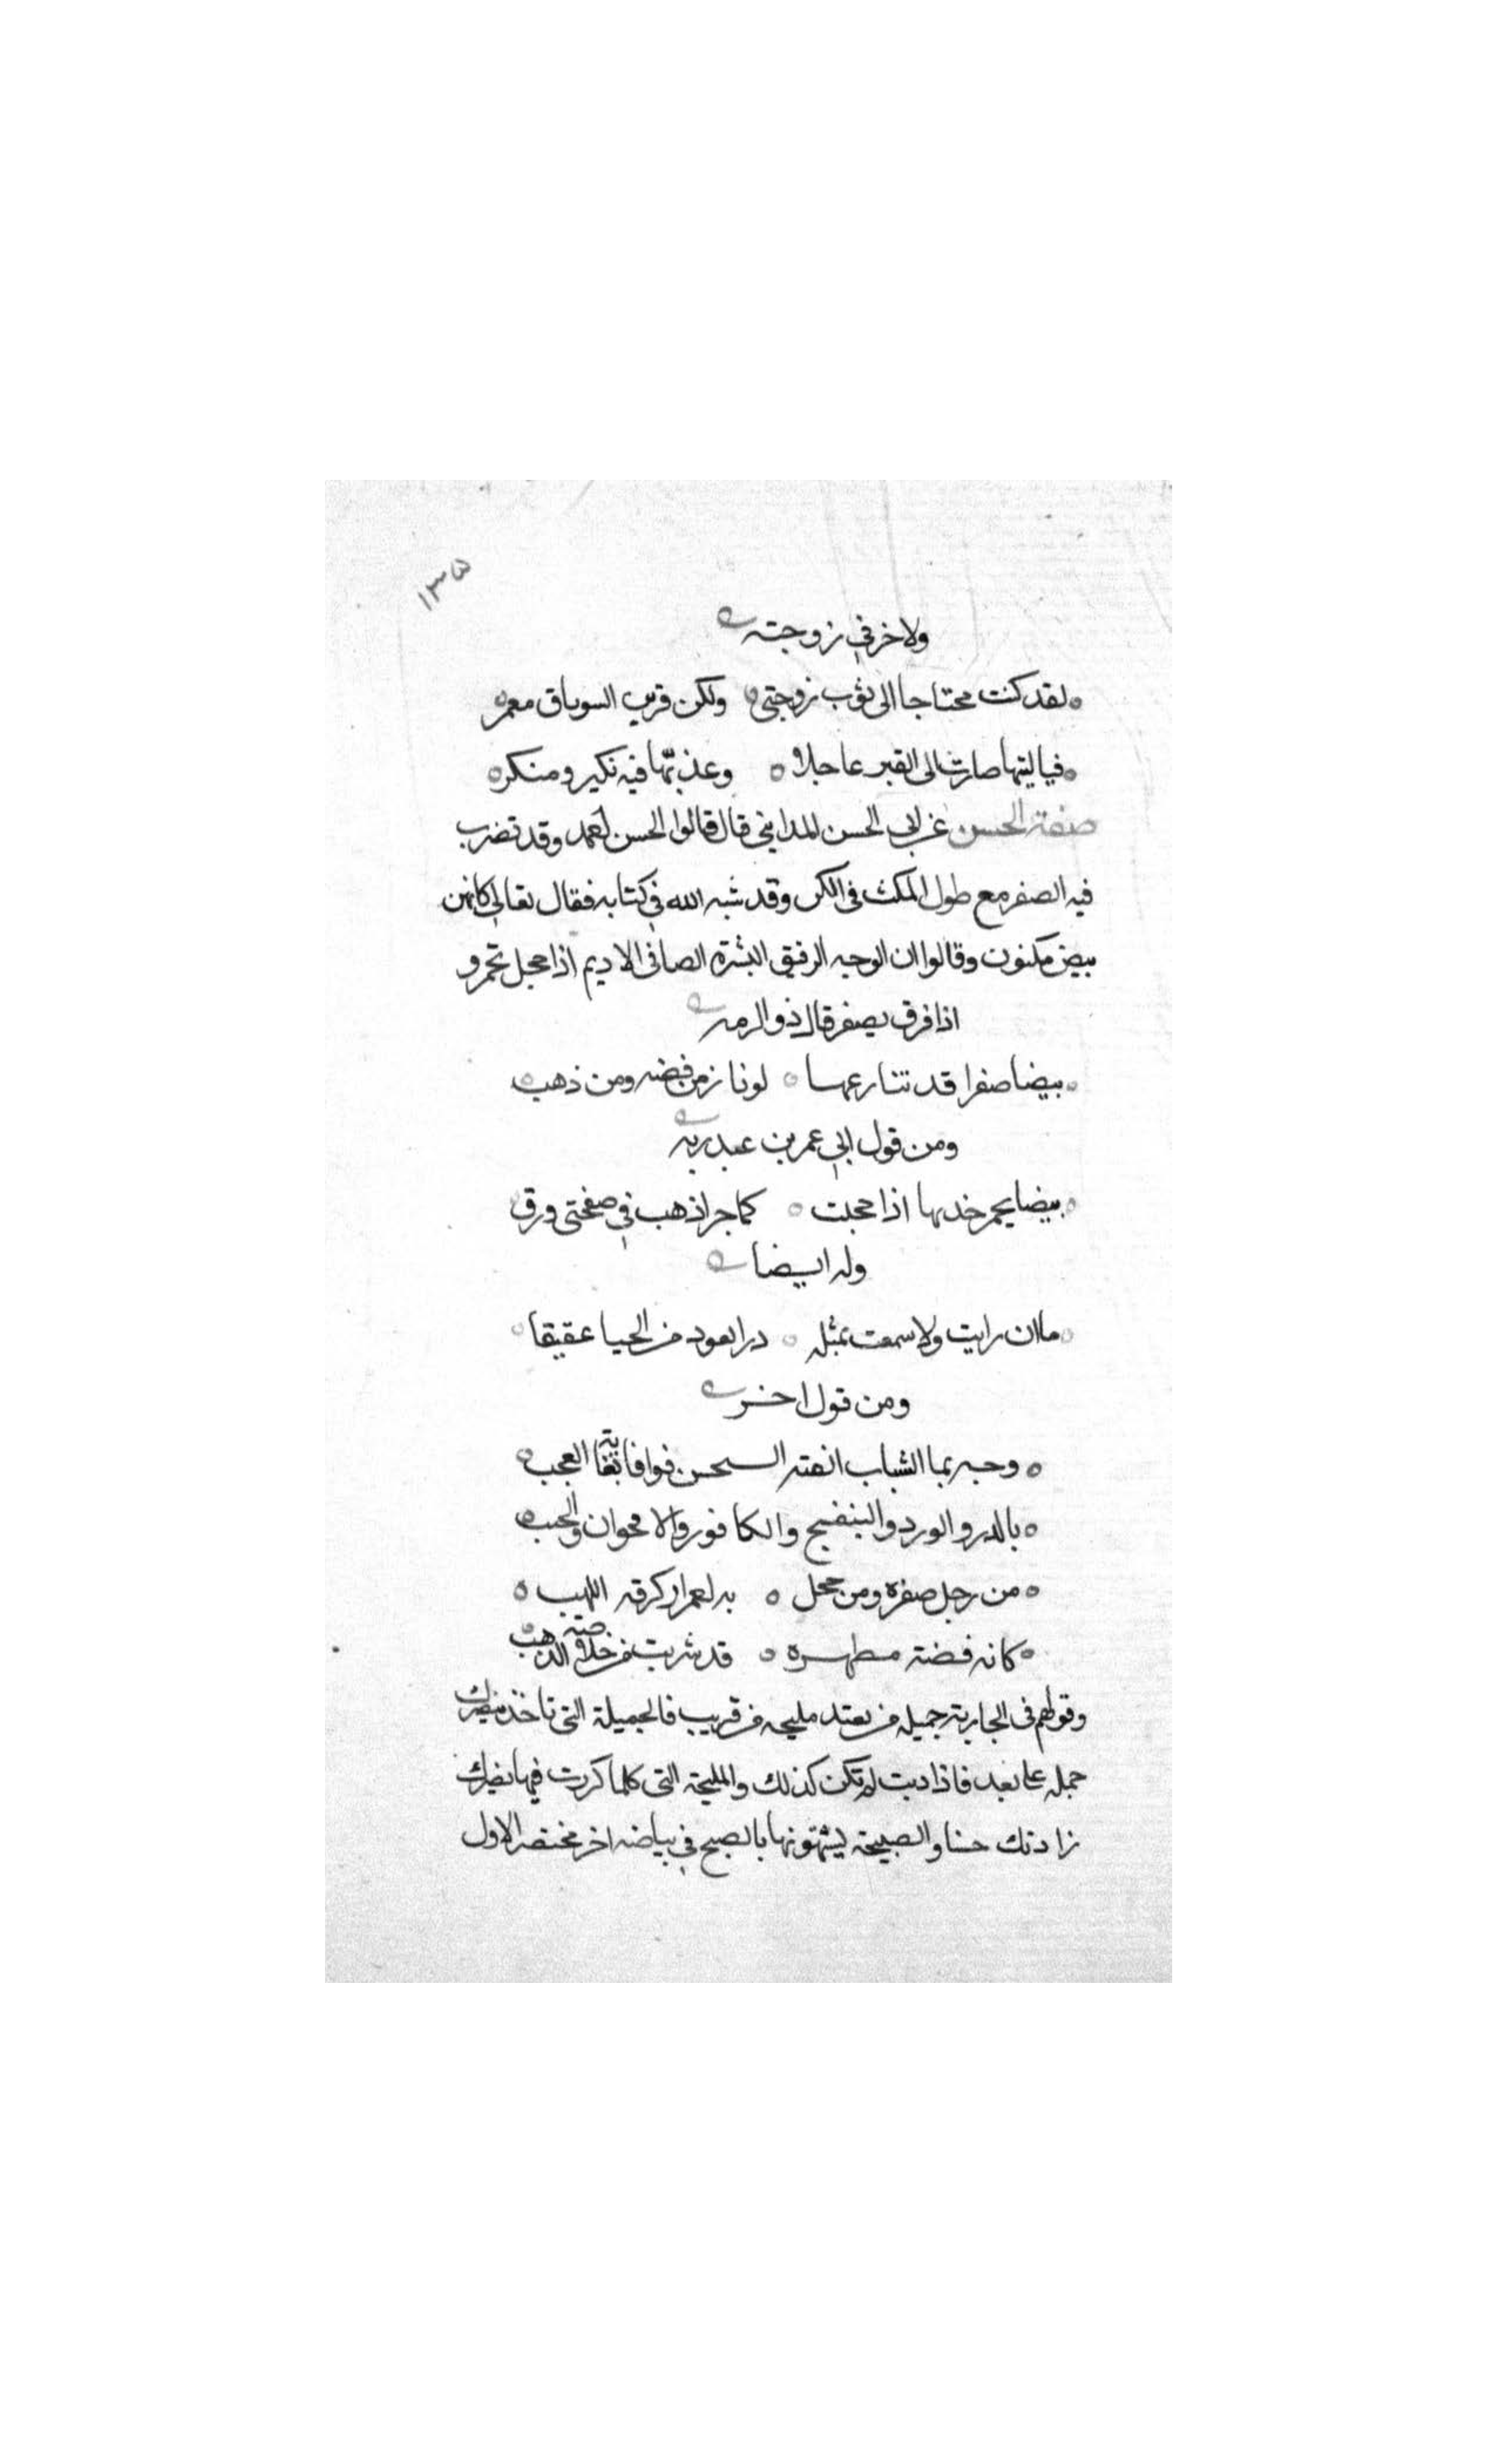 ١٣٥
ولاخر في زوجته
لقد كنت محتاجا الى ثوب زوجتي ولكن قرين السو باق معمر
فيا ليتها صارت الى القبر عاجلا وعذبتها فيه نكير ومنكر
صفة الحسن عن ابي الحسن المدايني قال قالوا الحسن لحمد وقد تضرب
فيه الصفر مع طول المكث في الكن وقد شبه الله في كتابه فقال تعالى كانهن
بيض مكنون وقالوا ان الوجه الرقيق البشرة الصافى الاديم اذا خجل تحمر و
اذا فرق يصفر قال ذو الرمه
بيضا صفرا قد تنازعها لونان من فضه ومن ذهب
ومن قول ابي عمر بن عبد ربه
بيضا يحمر خديها اذا خجلت كما جرا ذهب في صفحتي ورق
وله ايضا
ما ان رايت ولا سمعت بمثله درا يعود من الحيا عقيقا
ومن قول اخر
الشباب فوافا العجب
بالدر والورد والبنفسج والكافور والاقحوان
من صفرة ومن خجل اللهب
كانه فضة مطهره قد شربت من خلاصة الذهب
وقولهم في الجارية جميله من بعتد مليحه من قريب فالجميلة التى تاخذ بنصرك
جمله على بعد فاذا دبت لم تكن كذلك والمليحة التى كلما كررت فيها بصرك
زادتك حسنا والصبيحة يشبهونها بالصبح في بياضه اخر مختصر الاول